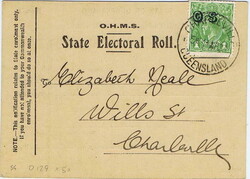 O.H.M.S.
State Electoral Roll.
To
Elizabeth Neale
Wills St
Charleville
OS
QUEENSLAND
NOTE.—This notification relates to State enrolment only.
If you have not attended to your Commonwealth
enrolment, you should do so at once.